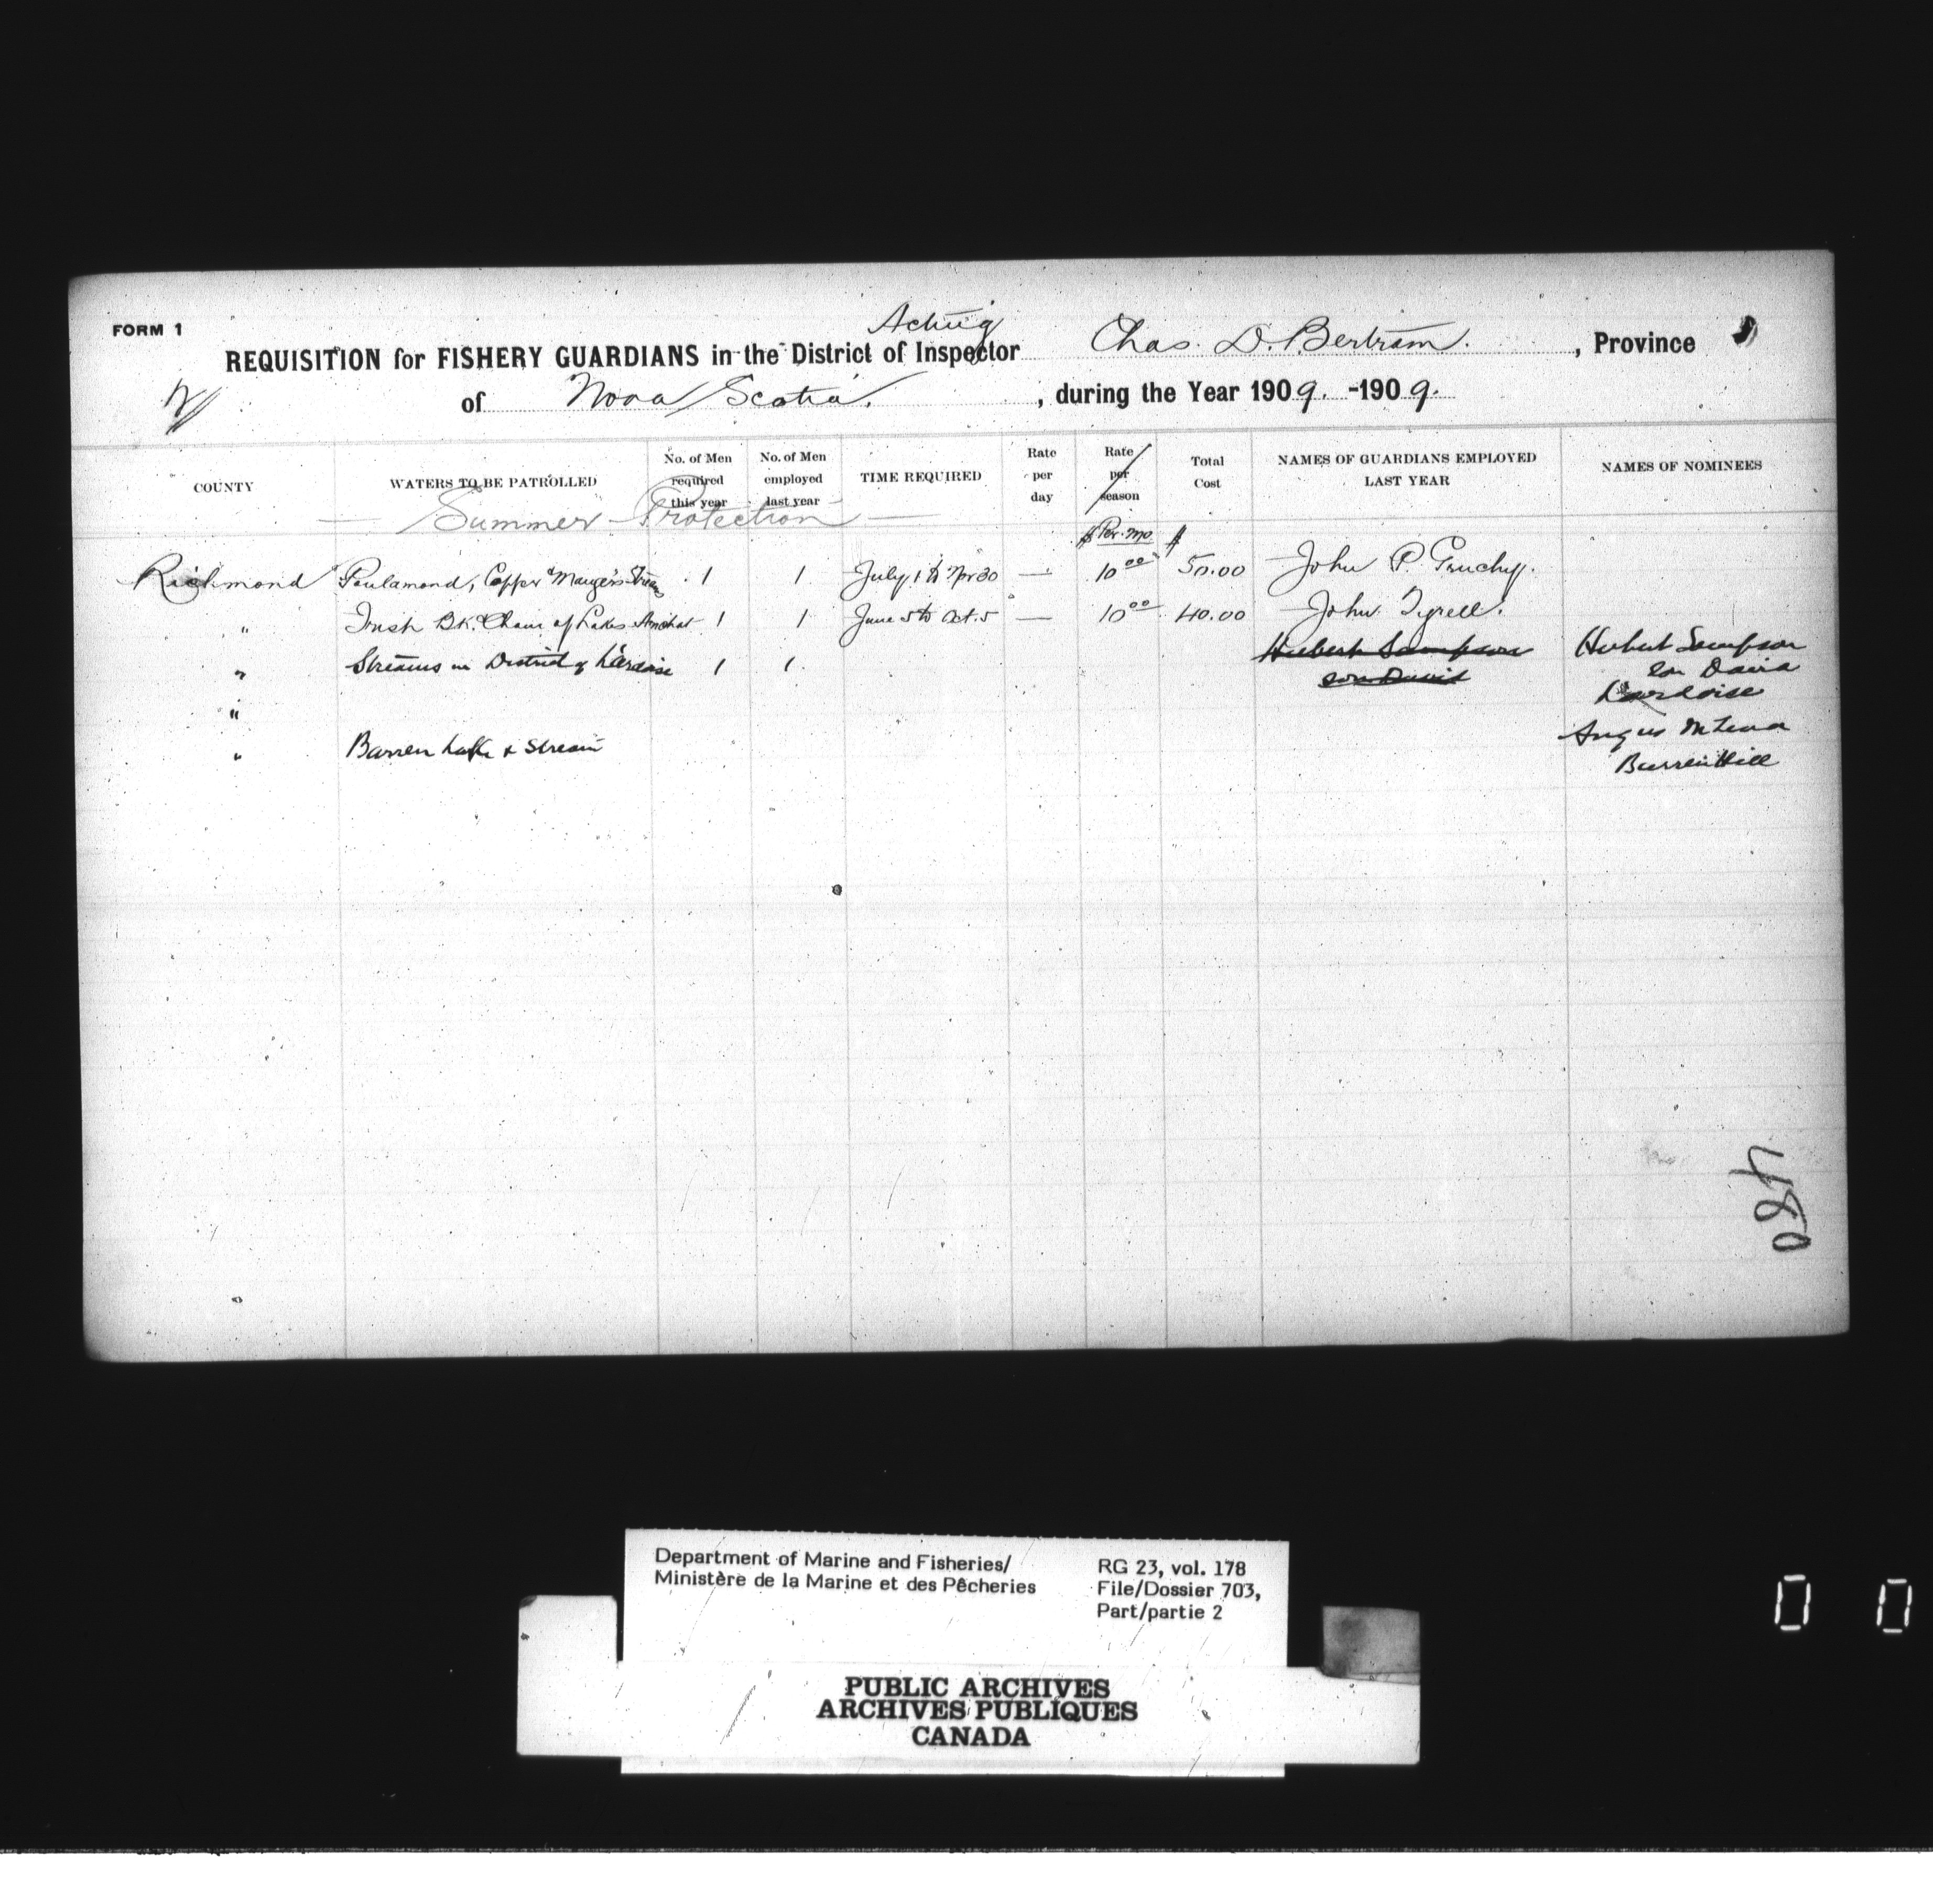 FORM 1
Acting
REQUISITION for FISHERY GUARDIANS in the District of Inspector Chas. D. Bertram. , Province
of Nova Scotia. , during the Year 1909. -1909.
COUNTY WATERS TO BE PATROLLED No. of Men required this year No. of Men employed last year TIME REQUIRED Rate per day Rate per season Total Cost NAMES OF GUARDIANS EMPLOYED LAST YEAR NAMES OF NOMINEES
— Summer Protection —
$ Per. mo $
Richmond Poulamond, Copper & Mauger's Streams 1 1 July 1 to Nov 30 — 10 00 50.00 John P. Gruchy.
" Irish Bk. Chain of Lakes Arichat 1 1 June 5 to Oct. 5 — 10 00 40.00 John Tyrell.
" Streams in District of L'ardoise 1 1 Hubert Sampson Hubert Sampson
son David son David
" L'ardoise
" Barren Lake & Stream Angus
Barren Hill
480
Department of Marine and Fisheries/ RG 23, vol. 178
Ministère de la Marine et des Pêcheries File/Dossier 703,
Part/partie 2
PUBLIC ARCHIVES
ARCHIVES PUBLIQUES
CANADA
0 0